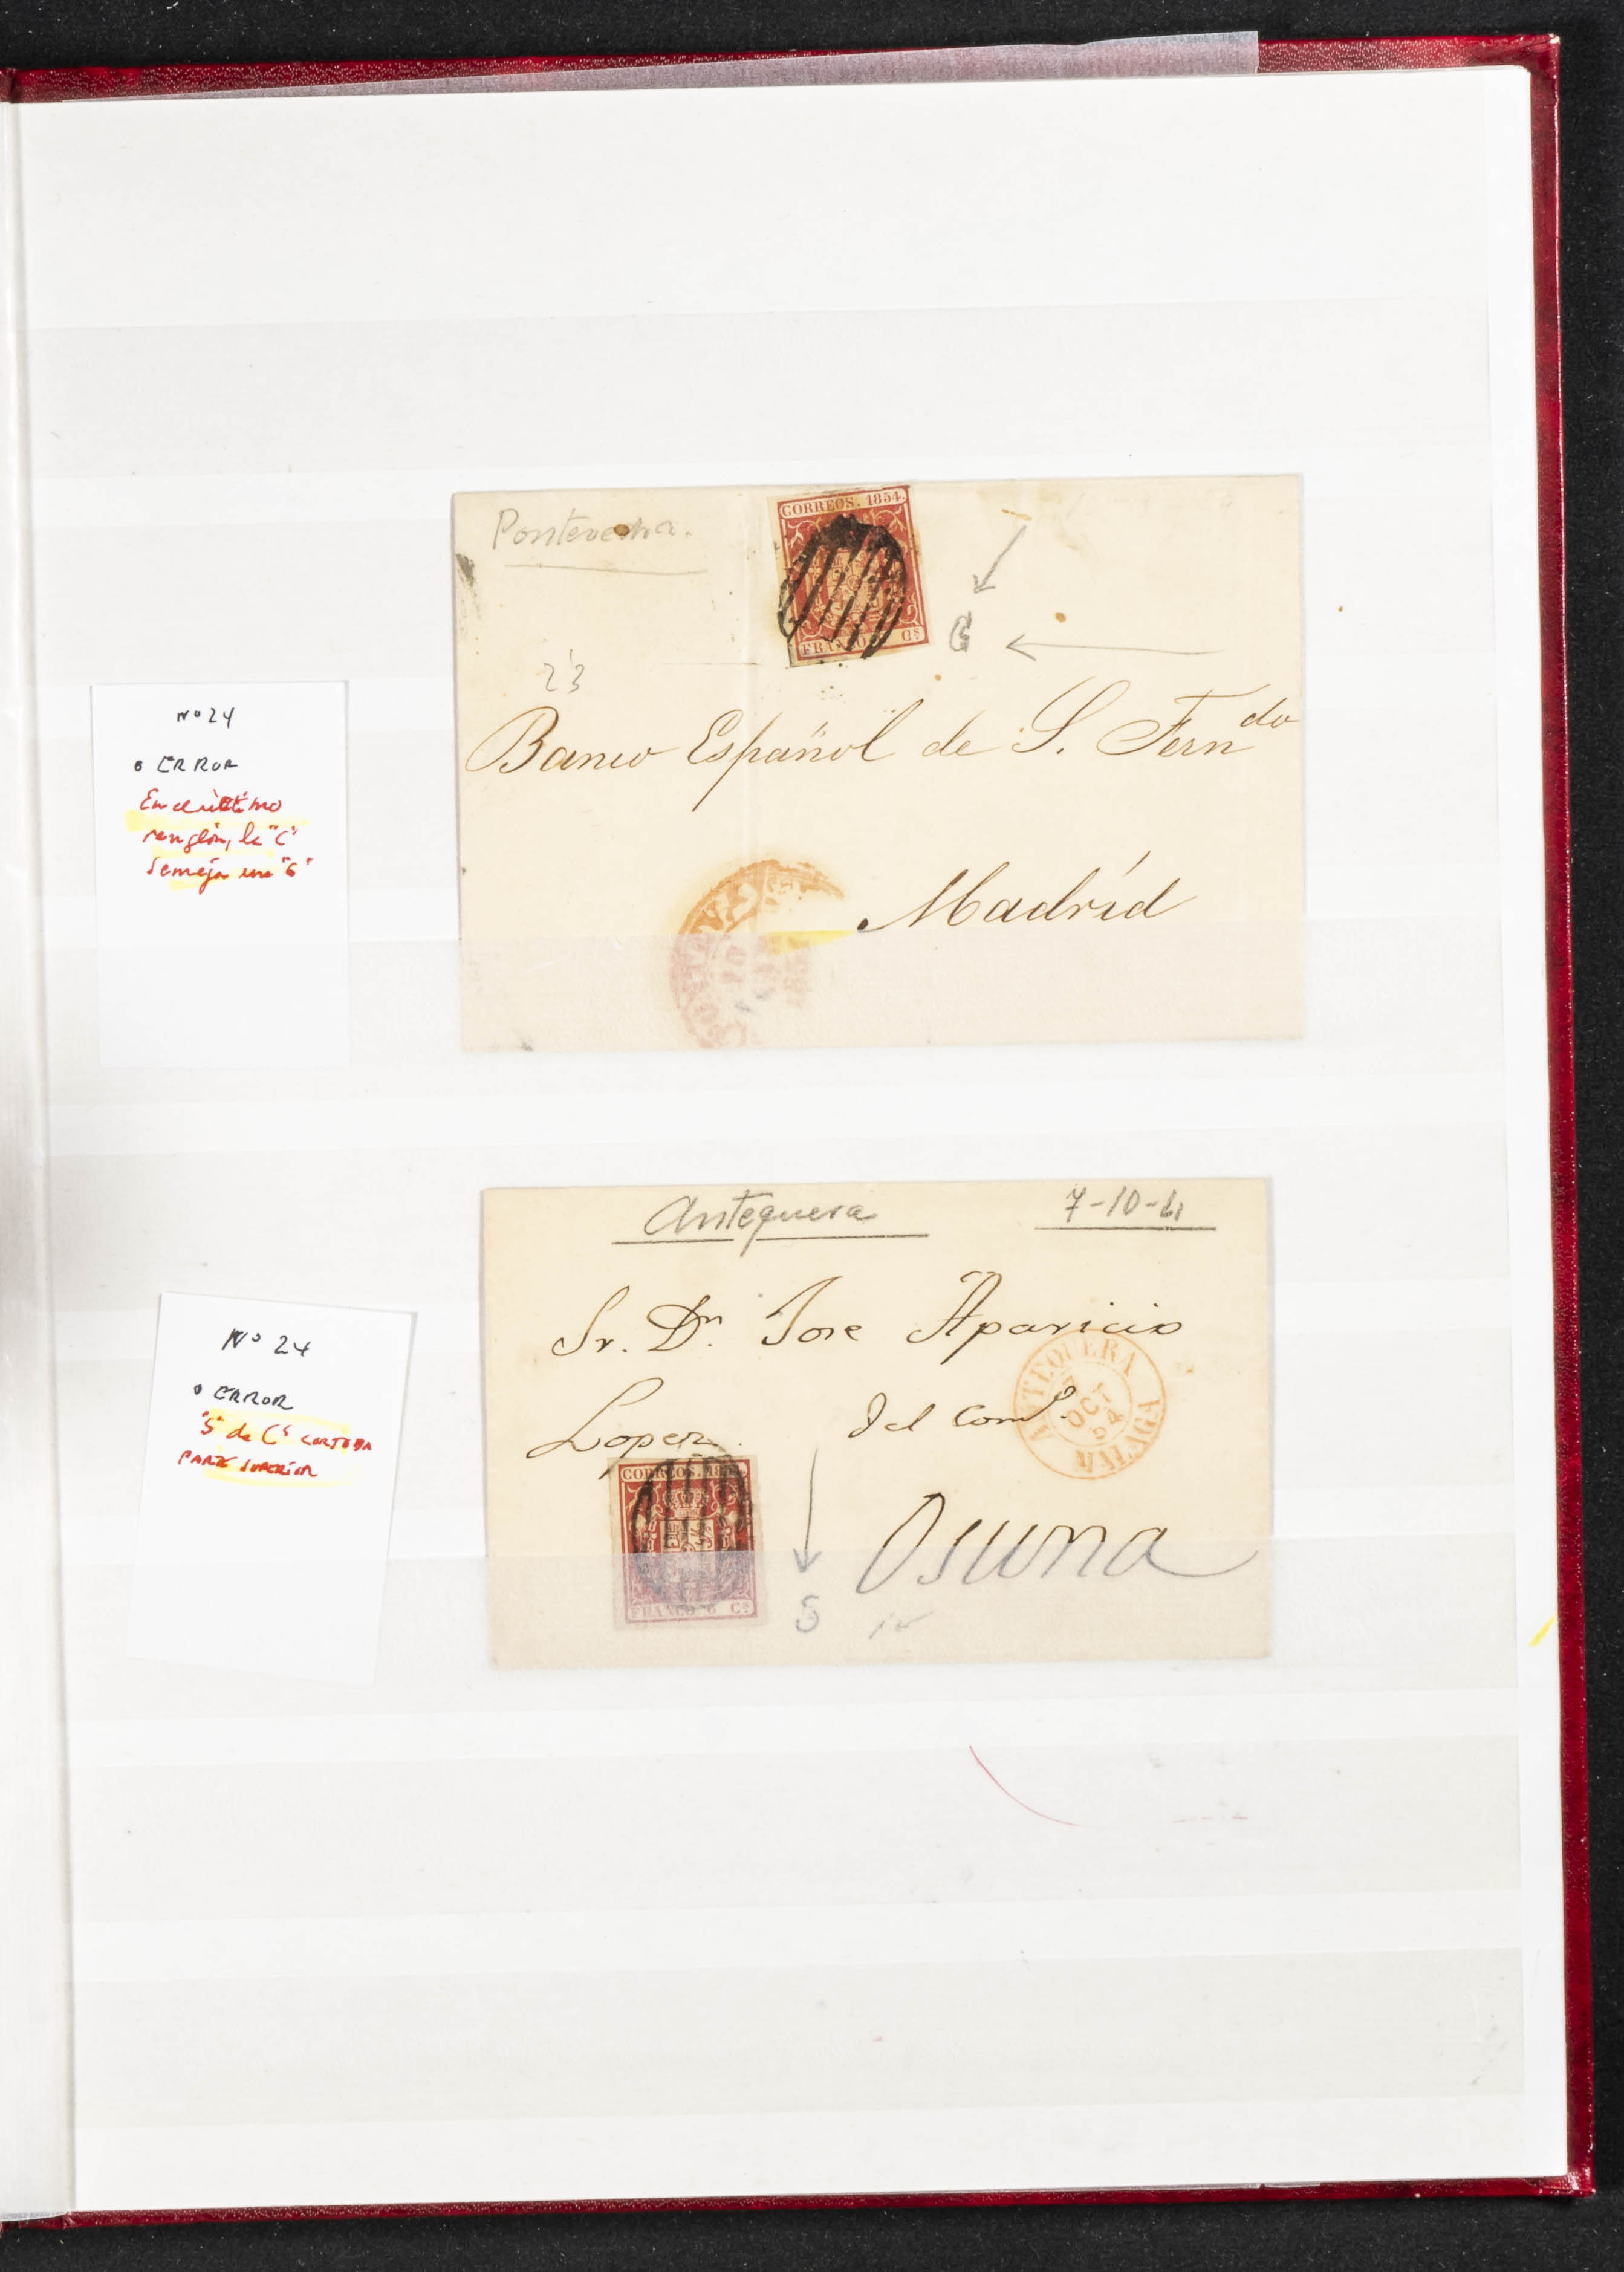 Pontevedra.
CORREOS. 1854.
FRANCO Cs
G
23
Banco Español de S. Ferndo
Madrid
Nº 24
• ERROR
En el último
renglón, la "C"
semeja una "G"
Antequera 7-10-4
Sr. Dn. Jose Aparicio
Lopez. del Como.
ANTEQUERA
7
OCT
54
MALAGA
Osuna
CORREOS. 18
FRANCO 6 Cs
S
Nº 24
• ERROR
"S" de Cs CORTADA
PARTE SUPERIOR